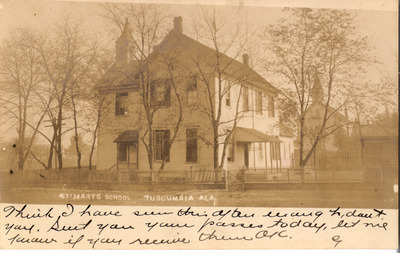 ST MARYS SCHOOL TUSCUMBIA ALA
Think I have seen this often enough, don't
you. Sent you your passes today, let me
know if you receive them OK. G